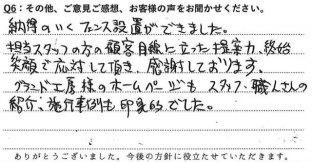 Q6：その他、ご意見ご感想、お客様の声をお聞かせください。
納得のいくフェンス設置ができました。
担当スタッフの方の顧客目線に立った提案力、終始
笑顔で応対して頂き、感謝しております。
グランド工房様のホームページもスタッフ・職人さんの
紹介、施行事例も印象的でした。
ありがとうございました。今後の方針に役立たせていただきます。